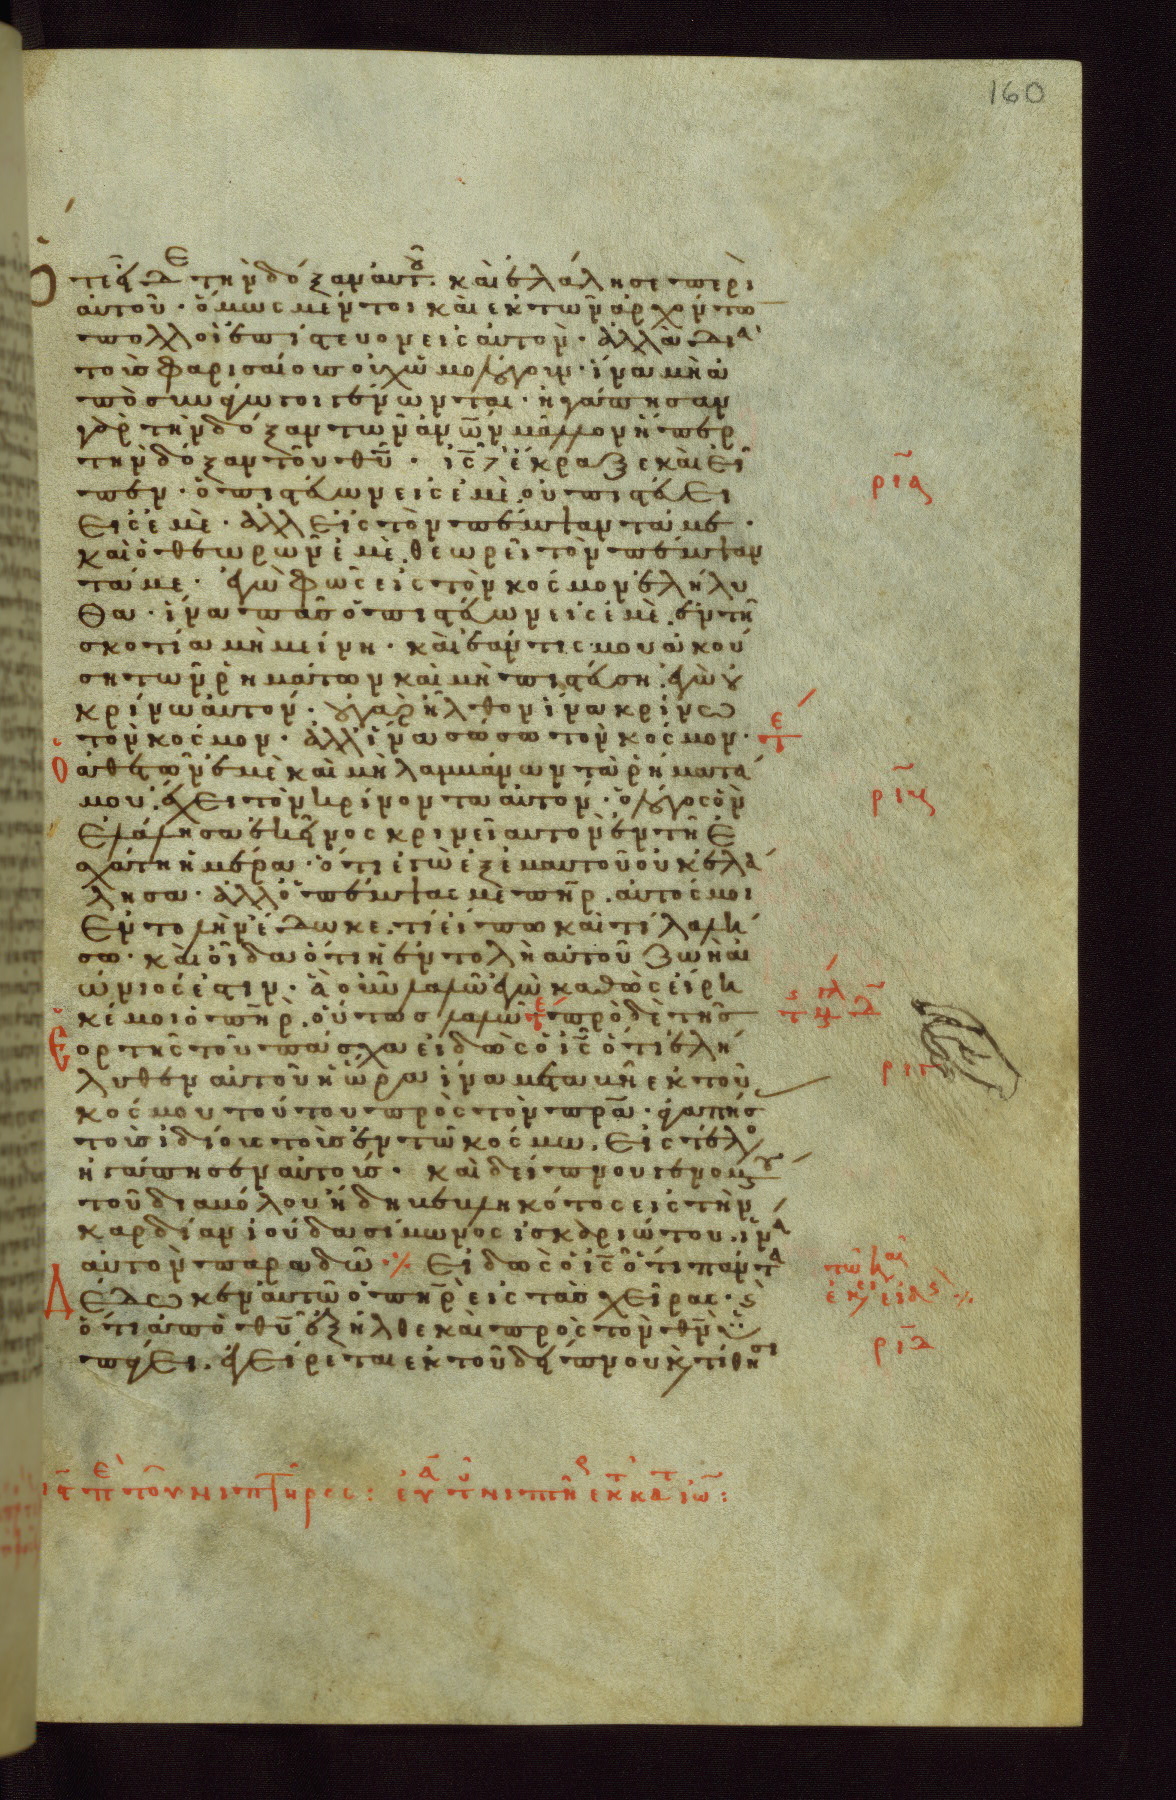 160
ὅτε εἶδε τὴν δόξαν αὐτοῦ. καὶ ἐλάλησε περὶ
αὐτοῦ· ὅμως μέντοι καὶ ἐκ τῶν ἀρχόντω
πολλοὶ ἐπίστευον εἰς αὐτόν· ἀλλὰ διὰ
τοὺς φαρισαίους οὐχ ὡμολόγουν· ἵνα μὴ ἀ
ποσυνάγωγοι γένωνται· ἠγάπησαν
γὰρ τὴν δόξαν τῶν ἀνων μᾶλλον ἤπερ
τὴν δόξαν τοῦ θυ· ις δὲ ἔκραξε καὶ εἶ
πεν· ὁ πιστεύων εἰς ἐμὲ, οὐ πιστεύει
εἰς ἐμὲ· ἀλλ εἰς τὸν πέμψαντά με·
καὶ ὁ θεωρῶν ἐμὲ, θεωρεῖ τὸν πέμψαν
τά με· ἐγὼ φῶς εἰς τὸν κόσμον ἐλήλυ
θα· ἵνα πᾶς ὁ πιστεύων εἰς ἐμὲ, ἐν τῇ
σκοτία μὴ μείνη· καὶ ἐάν τις μου ἀκού
ση τῶν ρημάτων καὶ μὴ πιστεύση, ἐγὼ οὐ
κρίνω αὐτόν· οὐ γὰρ ἦλθον ἵνα κρίνω
τὸν κόσμον· ἀλλ ἵνα σώσω τὸν κόσμον·
ὁ ἀθετῶν ἐμὲ καὶ μὴ λαμβάνων τὰ ρήματά
μου, ἔχει τὸν κρίνοντα αὐτόν· ὁ λόγος ὃν
ἐλάλησα ἐκεῖνος κρινεῖ αὐτὸν ἐν τῇ ἐ
σχάτη ἡμέρα· ὅτι ἐγὼ ἐξ ἐμαυτοῦ οὐκ ἐλά
λησα· ἀλλ ὁ πέμψας με πηρ, αὐτός μοι
ἐντολὴν ἔδωκε, τί εἴπω καὶ τί λαλή
σω· καὶ οἶδα ὅτι ἡ ἐντολὴ αὐτοῦ ζωὴ αἰ
ώνιός ἐστιν· ἃ οὖν λαλῶ ἐγὼ καθὼς εἴρη
κέ μοι ὁ πηρ, οὕτως λαλῶ· πρὸ δὲ τῆς
ἑορτῆς τοῦ πάσχα εἰδὼς ὁ ις ὅτι ἐλή
λυθεν αὐτοῦ ἡ ὥρα ἵνα μεταβῆ ἐκ τοῦ
κόσμου τούτου πρὸς τὸν πρα· ἀγαπήσας
τοὺς ἰδίους τοὺς ἐν τῷ κόσμω, εἰς τέλος
ἠγάπησεν αὐτούς· καὶ δείπνου γενομένου
τοῦ διαβόλου ἤδη βεβληκότος εἰς τὴν
καρδίαν ἰούδα σίμωνος ἰσκαριώτου, ἵνα
αὐτὸν παραδῶ· εἰδὼς ὁ ις ὅτι πάντα
δέδωκεν αὐτῶ ὁ πηρ εἰς τὰς χεῖρας· καὶ
ὅτι ἀπὸ θυ ἐξῆλθε καὶ πρὸς τὸν θν ὑ
πάγει, ἐγείρεται ἐκ τοῦ δείπνου καὶ τίθησι
ρια
ριβ